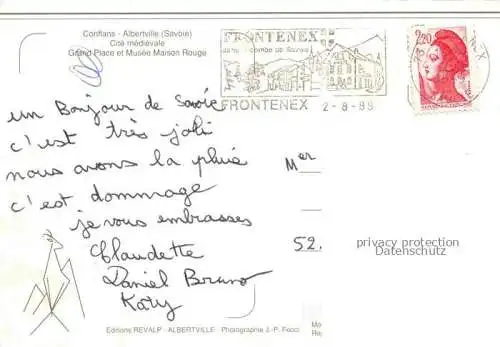 Conflans - Albertville (Savoie)
Cité médiévale
Grand Place et Musée Maison Rouge
FRONTENEX
COMBE DE SAVOIE
FRONTENEX 2-8-89
2,20
un Bonjour de Savoie
c'est très joli
nous avons la pluie
c'est dommage
je vous embrasses
Claudette
Daniel Bruno
Katy
Mer
52.
privacy protection
Datenschutz
Editions REVALP - ALBERTVILLE - Photographie J.-P.